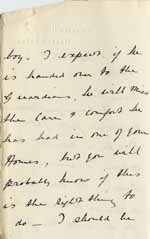 boy - I expect if he
is handed over to the
Guardians, he will miss
the care & comfort he
has had in one of your
Homes, but you will
probably know if this
is the right thing to
do - I should be